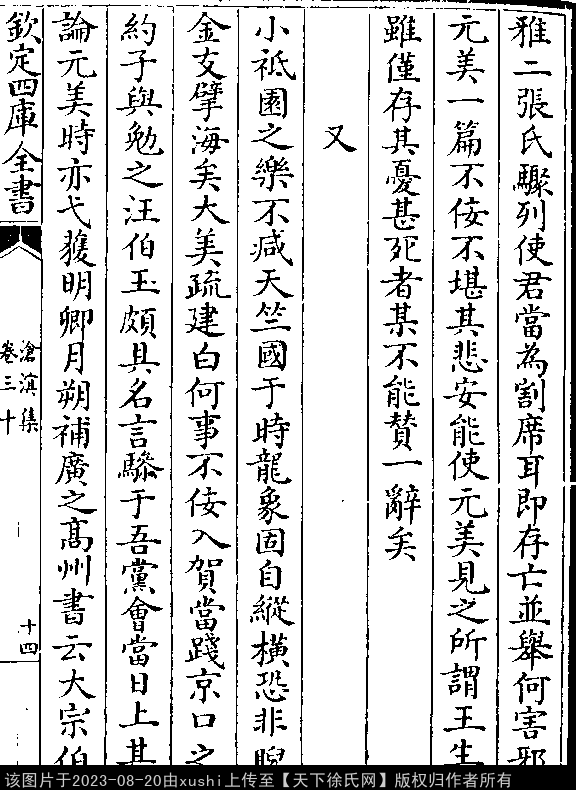 雅二張氏驟列使君當為割席耳即存亡並舉何害邪
元美一篇不佞不堪其悲安能使元美見之所謂王生
雖僅存其憂甚死者某不能贊一辭矣
又
小祗園之樂不減天竺國于時龍象固自縱横恐非睨
金支擘海矣大美疏建白何事不佞入賀當踐京口之
約子與勉之汪伯玉頗具名言驂于吾黨會當日上其
論元美時亦弋獲明卿月朔補廣之髙州書云大宗伯
欽定四庫全書
滄溟集
卷三十
十四
该图片于2023-08-20由xushi上传至【天下徐氏网】版权归作者所有